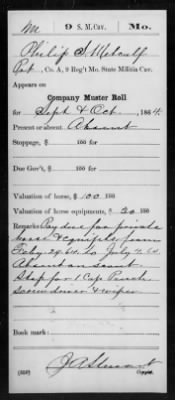 M 9 S. M. Cav. Mo.
Philip S. Metcalf
Pvt, Co. A, 9 Reg't Mo. State Militia Cav.
Appears on
Company Muster Roll
for Sept & Oct, 1864.
Present or absent Absent
Stoppage, $ 100 for
Due Gov't, $ 100 for
Valuation of horse, $ 100 100
Valuation of horse equipments, $ 20 100
Remarks: Pay due for private
horse & equipts from
Feby 29 64 to July 4 64
Absent on scout
Stop for 1 Cap Pouch
screw driver & wiper
Book mark:
J A Stewart
(858) Copyist.